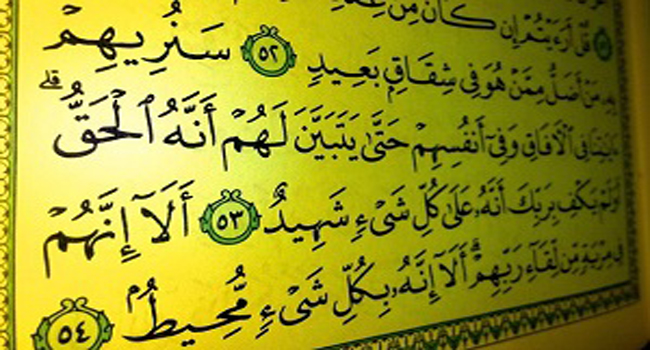 ۞ قُلْ أَرَءَيْتُمْ إِن كَانَ مِنْ عِندِ
بِهِۦ مَنْ أَضَلُّ مِمَّنْ هُوَ فِى شِقَاقٍۭ بَعِيدٍ ٥٢ سَنُرِيهِمْ
ءَايَٰتِنَا فِى ٱلْأَفَاقِ وَفِىٓ أَنفُسِهِمْ حَتَّىٰ يَتَبَيَّنَ لَهُمْ أَنَّهُ ٱلْحَقُّ ۗ
أَوَلَمْ يَكْفِ بِرَبِّكَ أَنَّهُۥ عَلَىٰ كُلِّ شَىْءٍ شَهِيدٌ ٥٣ أَلَآ إِنَّهُمْ
فِى مِرْيَةٍ مِّن لِّقَآءِ رَبِّهِمْ ۗ أَلَآ إِنَّهُۥ بِكُلِّ شَىْءٍ مُّحِيطٌۢ ٥٤